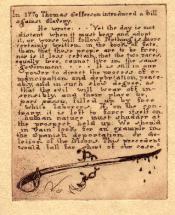 In 1770 Thomas Jefferson introduced a bill
against slavery.
He wrote: "Yet the day is not
distant when it must bear and adopt
it, or worse will follow. Nothing is more
certainly written in the book of fate,
than that these people are to be free,
nor is it less certain that the two races
equally free, cannot live in the same
Government. It is still in our
power to direct the process of
emancipation and deportation, peace-
ably, and in such slow degree, as
that the evil will wear off in-
sensibly, and their place be,
pari passu, filled up by free
white laborers. If, on the con-
trary, it is left to force itself on,
human nature must shudder at
the prospect held up. We should
in vain look for an example in
the Spanish deportation or de-
letion of the Moors. This precedent
would fall far short of our case.